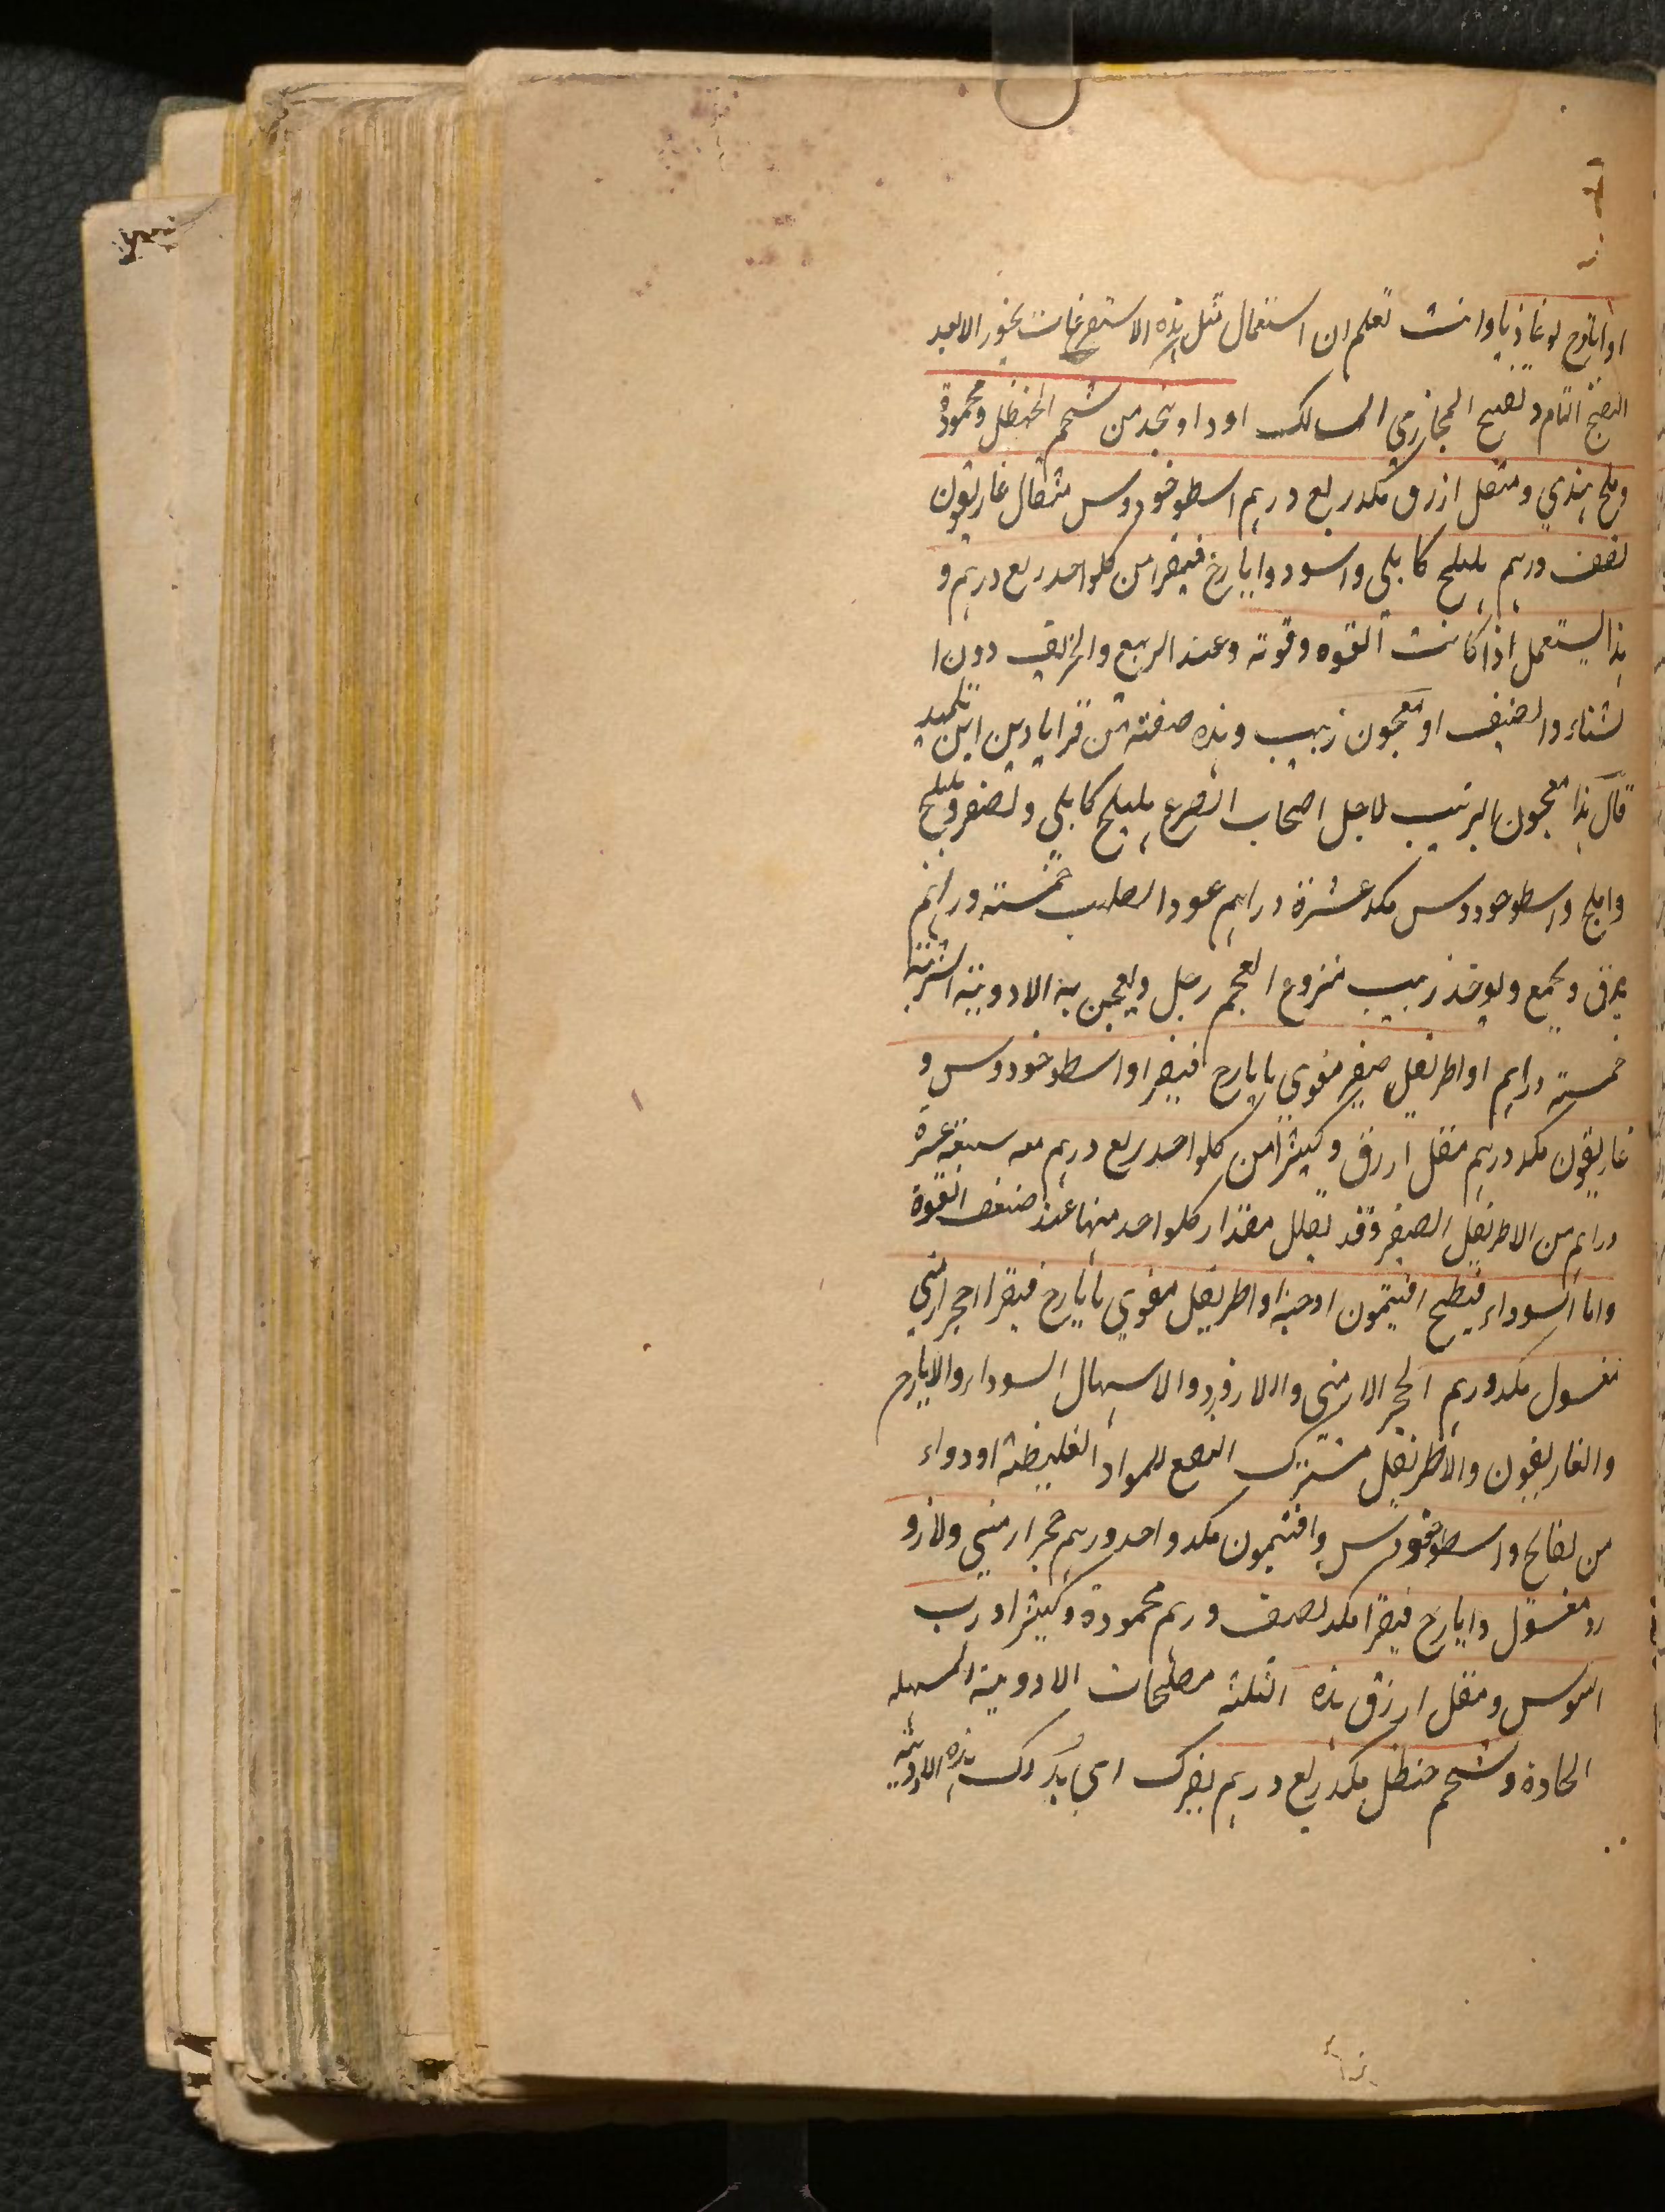 او ایارج لوغاذیا وانت تعلم ان استعمال مثل هذه الاستفرغات یجوز الا بعد
النضج التام و تفتیح المجاری المسالک او دا و یتخذ من شحم الحنظل و محمودة
و ملح هندی و مقل ازرق مکد ربع درهم اسطوخودوس مثقال غاریقون
نصف درهم هلیلج کابلی واسود و ایارج فیقرا من کلواحد ربع درهم و
هذا یستعمل اذا کانت القوه وقوته وعند الربیع والخریف دون ا
لشتاء والصیف او معجون زبیب و هذه صفته من قرابادین ابن تلمیذ
قال هذا معجون الزبیب لاجل اصحاب الصرع هلیلج کابلی و اصفر و بلیلج
واملج و اسطوخودوس مکد عشرة دراهم عود الصلیب خمسته دراهم
یدق و یجمع و یوخذ زبیب منزوع العجم رطل و یعجن به الادویة الشربة
خمسته دراهم او اطریفل صغیر مقوی بایارج افیقرا و اسطوخودوس و
غاریقون مکد درهم مقل ازرق و کثیرا من کلواحد ربع درهم مع سبعة عشرة
دراهم من الاطریفل الصغیر و قد یقلل مقدار کلواحد منها عند ضعف القوة
واما السوداء فبطبیخ افتیمون او حبه او اطریفل مقوی بایارج فیقرا حجر ارمنی
مغسول مکد درهم الحجر الارمنی واللازورد والاسهال السوداء والایارج
والغاریقون والاطریفل مشترک النفع للمواد الغلیظة او دواء
من بسفایج و اسطوخودوس و افتیمون مکد واحد درهم حجر ارمنی ولازو
رد مغسول و ایارج فیقرا مکد نصف درهم محمودة و کثیرا و رب
السوس و مقل ازرق هذه الثلثة مصلحات الادویة المسهله
الحادة و شحم حنظل مکد ربع درهم یفرک ای یدلک هذه الادویة